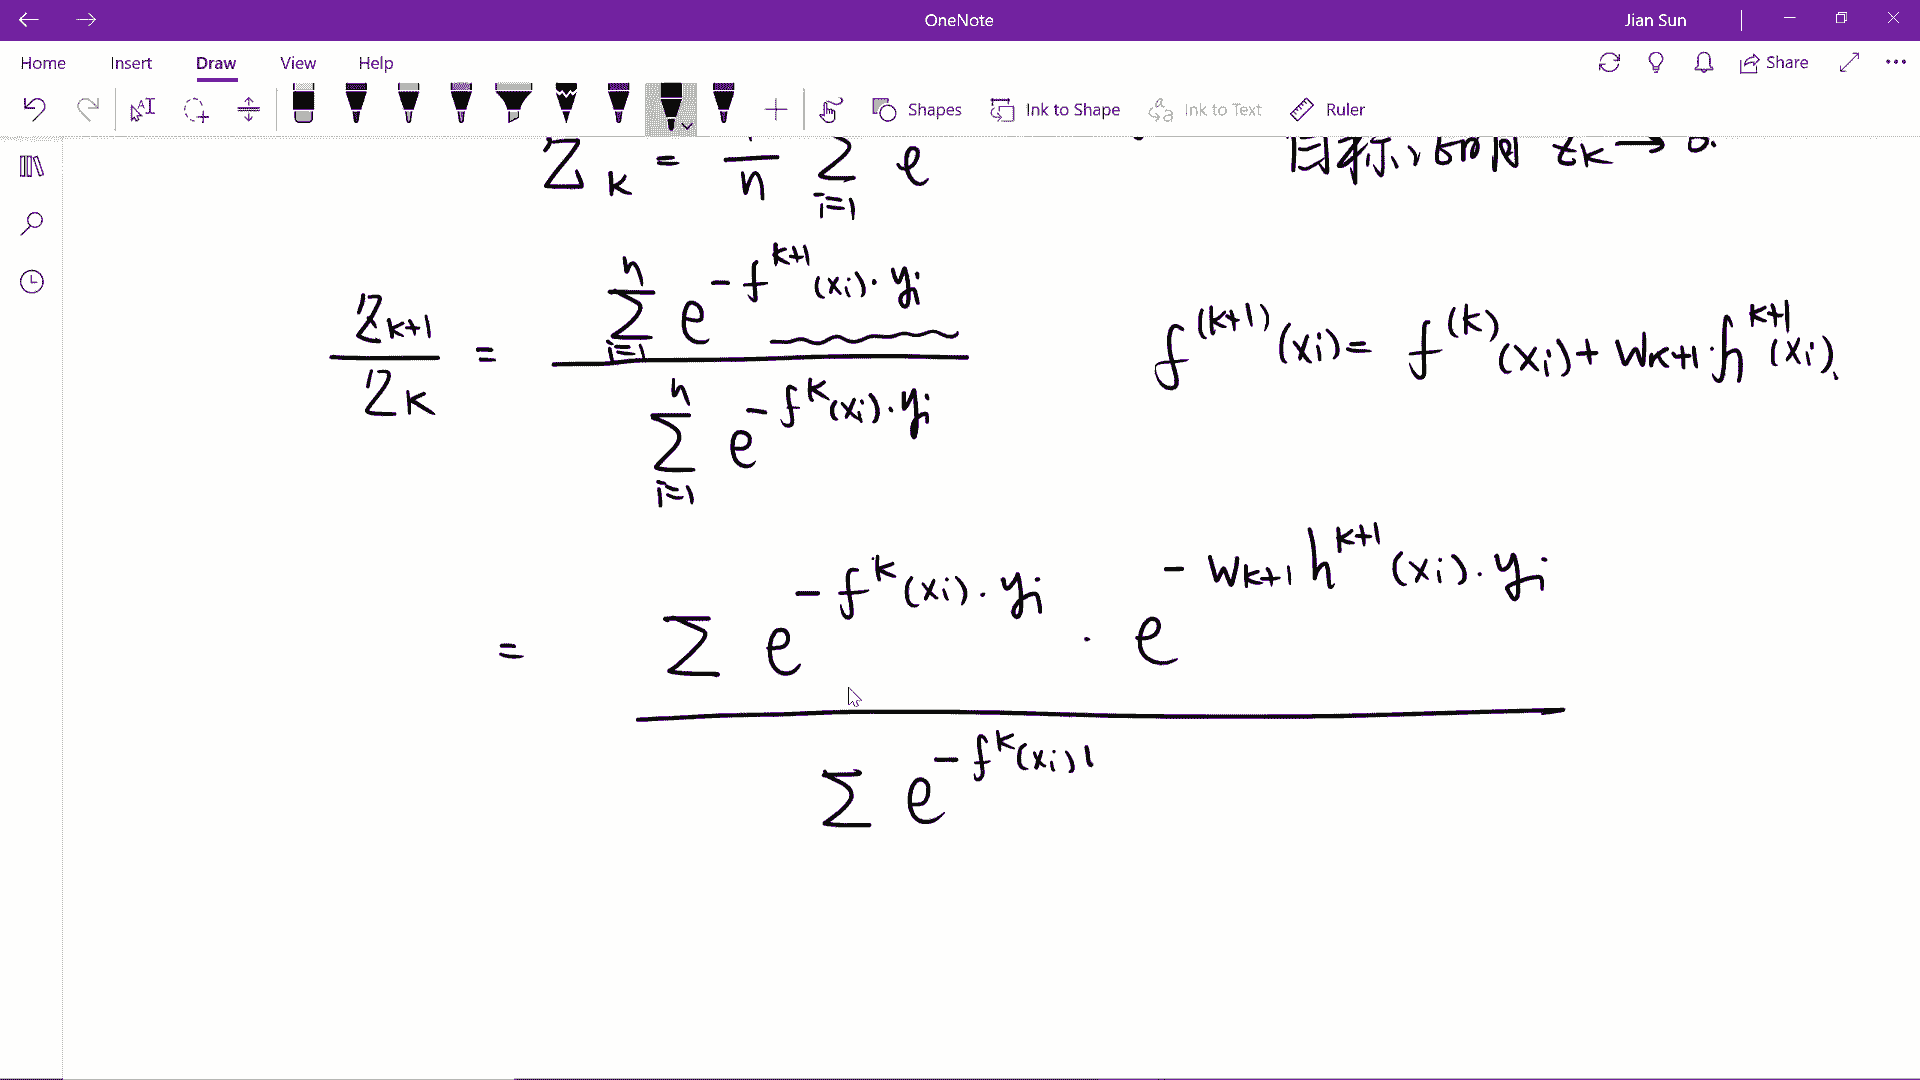 OneNote
Jian Sun
Home Insert Draw View Help
Share
Shapes Ink to Shape Ink to Text Ruler
Z_k = 1/n Σ_{i=1} e
目标 z_k → 0.
Z_{k+1} / Z_k = Σ_{i=1}^{n} e^{-f^{k+1}(x_i)·y_i} / Σ_{i=1}^{n} e^{-f^k(x_i)·y_i}
f^{(k+1)}(x_i) = f^{(k)}(x_i) + w_{k+1}·h^{k+1}(x_i).
= Σ e^{-f^k(x_i)·y_i} · e^{-w_{k+1}h^{k+1}(x_i)·y_i} / Σ e^{-f^k(x_i)